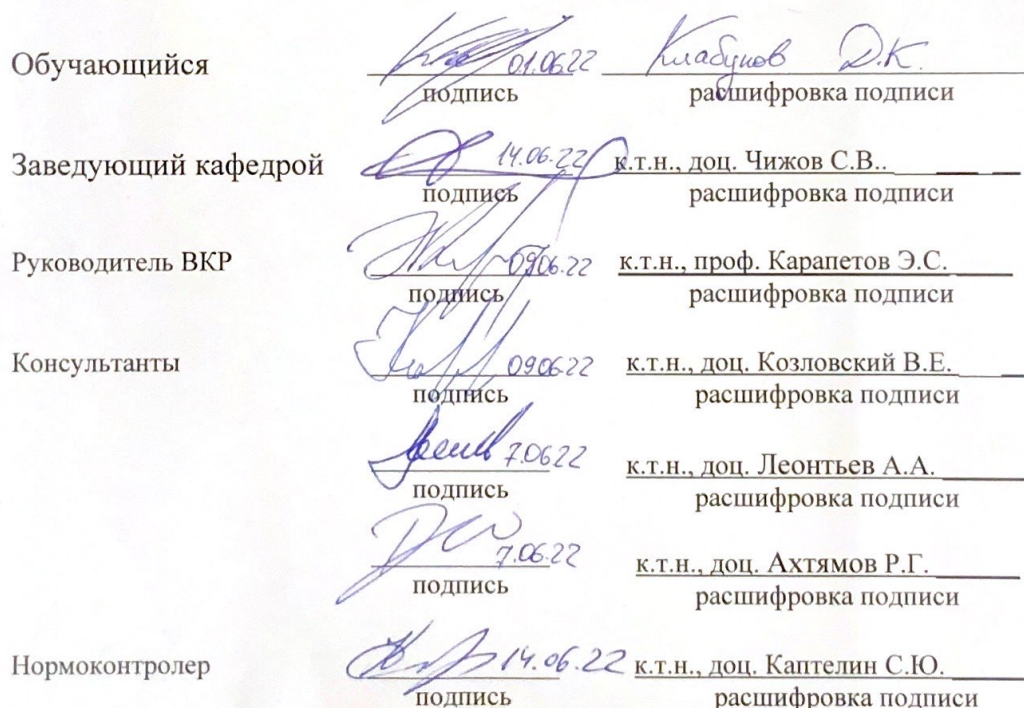 Обучающийся 01.06.22 Клабуков Д.К.
подпись расшифровка подписи
Заведующий кафедрой 14.06.22 к.т.н., доц. Чижов С.В..
подпись расшифровка подписи
Руководитель ВКР 09.06.22 к.т.н., проф. Карапетов Э.С.
подпись расшифровка подписи
Консультанты 09.06.22 к.т.н., доц. Козловский В.Е.
подпись расшифровка подписи
7.06.22 к.т.н., доц. Леонтьев А.А.
подпись расшифровка подписи
7.06.22 к.т.н., доц. Ахтямов Р.Г.
подпись расшифровка подписи
Нормоконтролер 14.06.22 к.т.н., доц. Каптелин С.Ю.
подпись расшифровка подписи